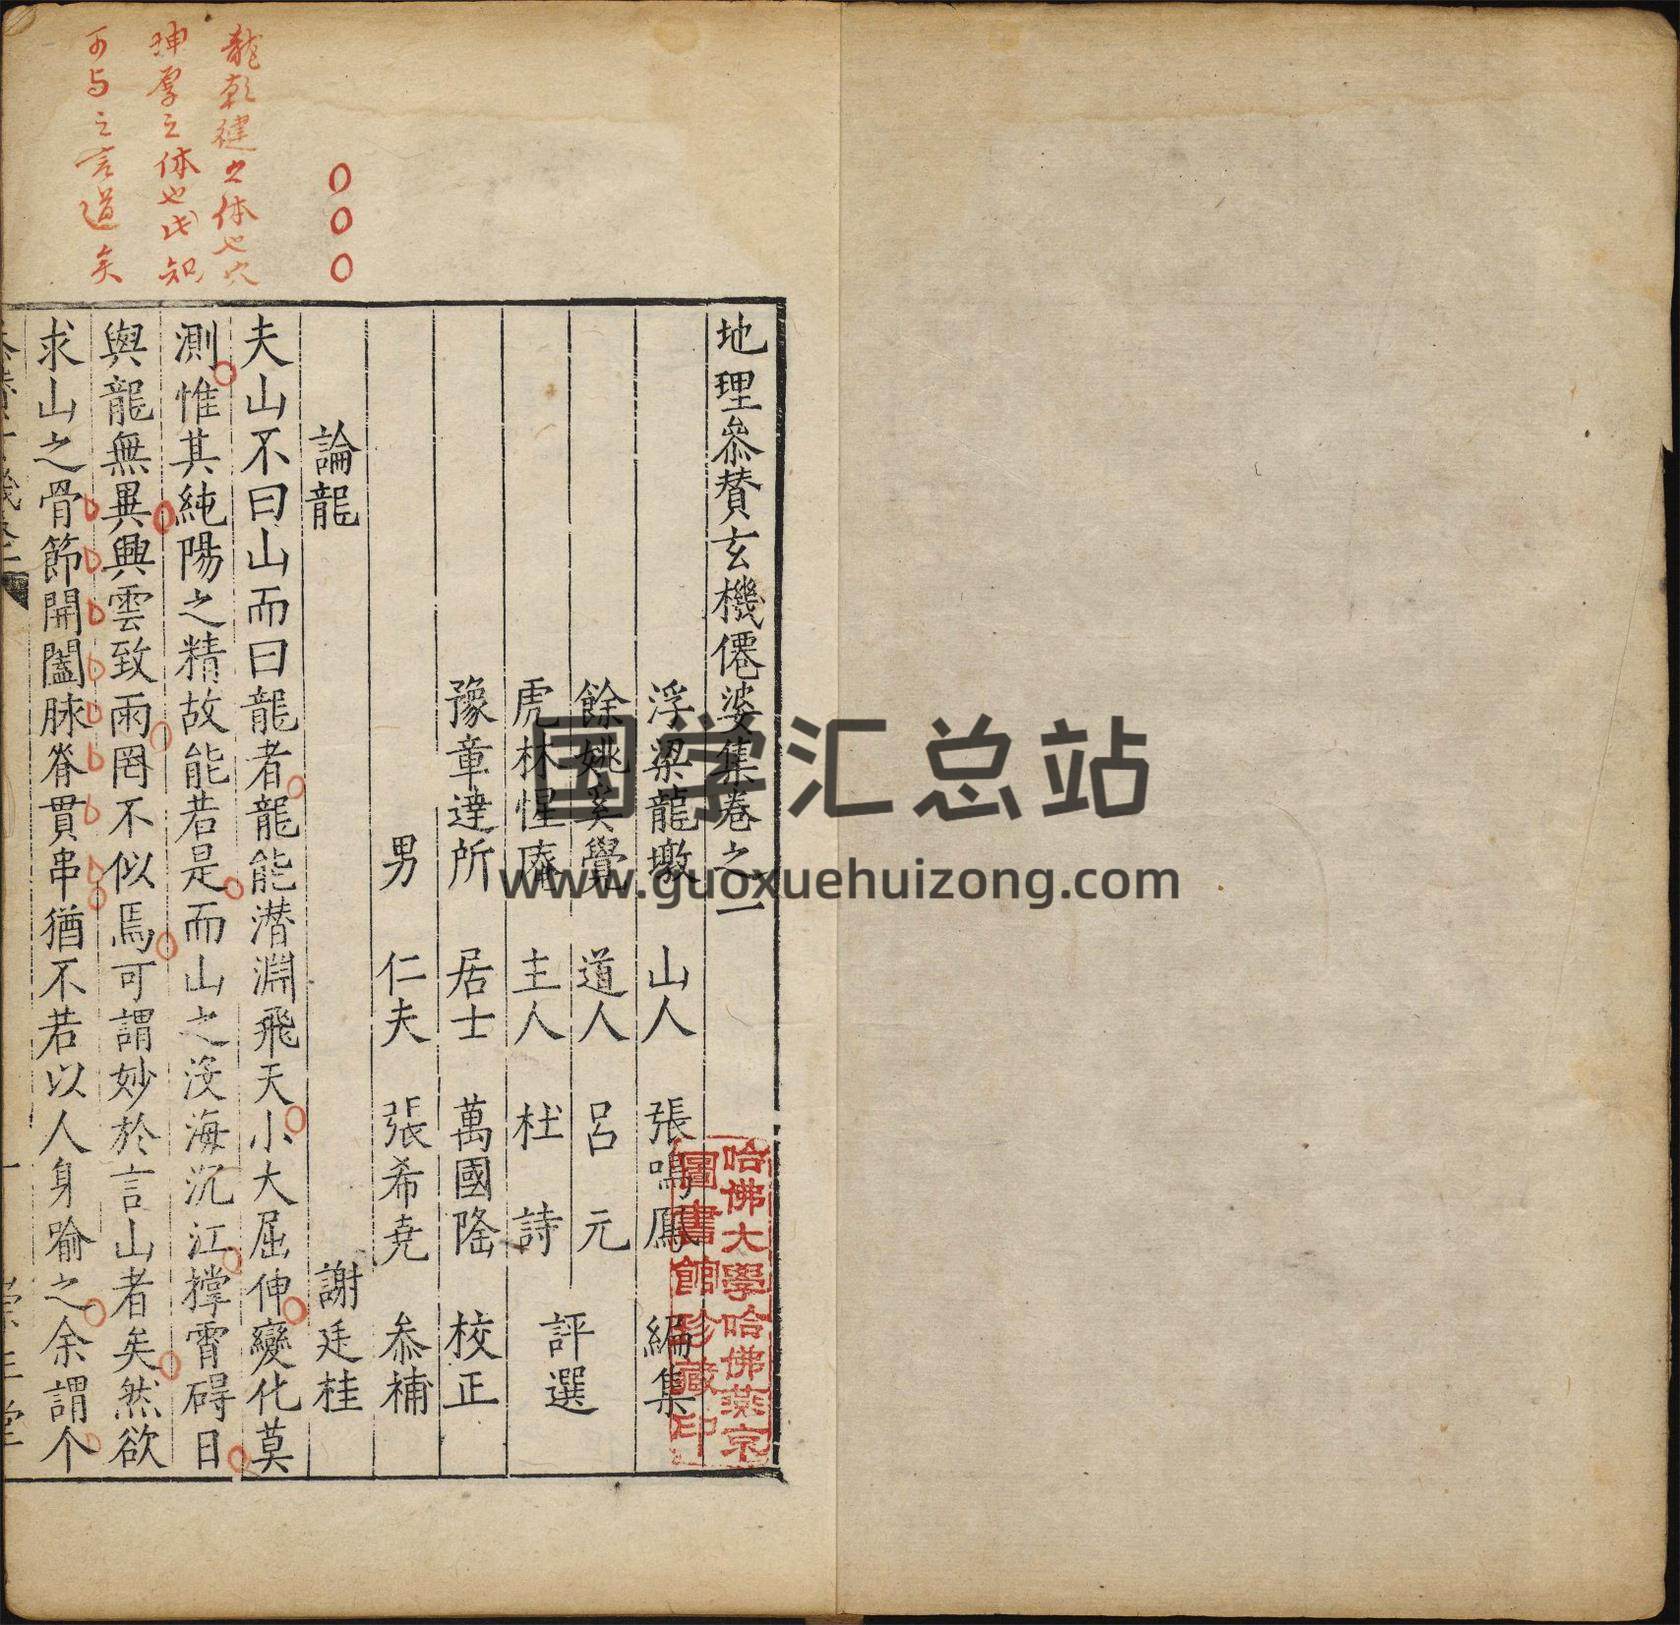 地理叅賛玄機僊婆集卷之一
浮梁龍墩 山人 張鳴鳳 編集
餘姚奚覺 道人 呂元
虎林惺庵 主人 杜詩
評選
豫章達所 居士 萬國隆 校正
男 仁夫 張希堯 叅補
論龍 謝廷桂
夫山不曰山而曰龍者龍能潜淵飛天小大屈伸變化莫
測惟其純陽之精故能若是而山之没海沉江撑霄碍日
與龍無異興雲致雨罔不似焉可謂妙於言山者矣然欲
求山之骨節開闔脉脊貫串猶不若以人身喻之余謂个
龍乾健之体也穴
坤厚之体也知
可与之言道矣
哈佛大學哈佛燕京
圖書館珍藏印
国学汇总站
www.guoxuehuizong.com